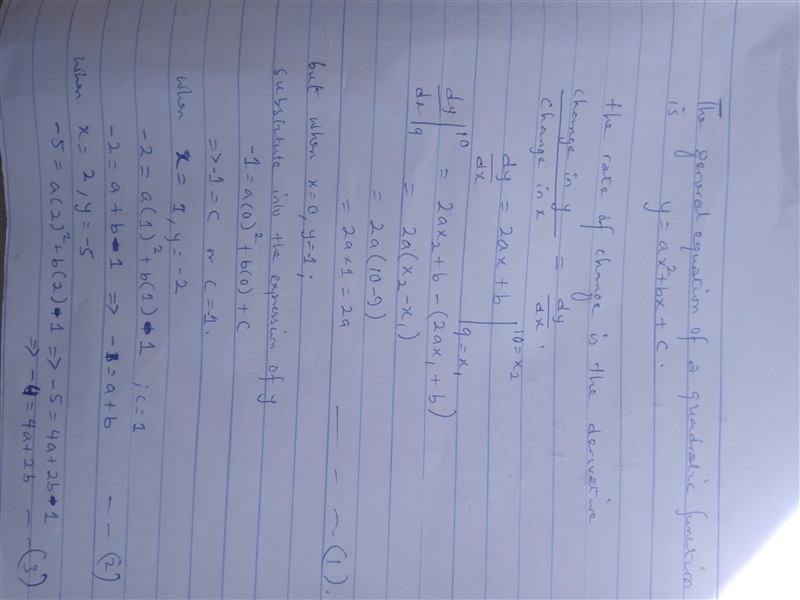 The general equation of a quadratic function
is y = ax² + bx + c.
the rate of change is the derivative
change in y / change in x = dy/dx.
dy/dx = 2ax + b | 10 = x₂ 9 = x₁
dy/dx |¹⁰ ₉ = 2ax₂ + b - (2ax₁ + b)
= 2a(x₂ - x₁)
= 2a(10-9)
= 2a×1 = 2a - - - (1).
but when x=0, y=1;
substitute into the expression of y
-1 = a(0)² + b(0) + c
=> -1 = c or c = -1.
when x = 1, y = -2
-2 = a(1)² + b(1) - 1 ; c=1
-2 = a + b - 1 => -1 = a + b - - (2)
when x = 2, y = -5
-5 = a(2)² + b(2) - 1 => -5 = 4a + 2b - 1
=> -4 = 4a + 2b - - (3)